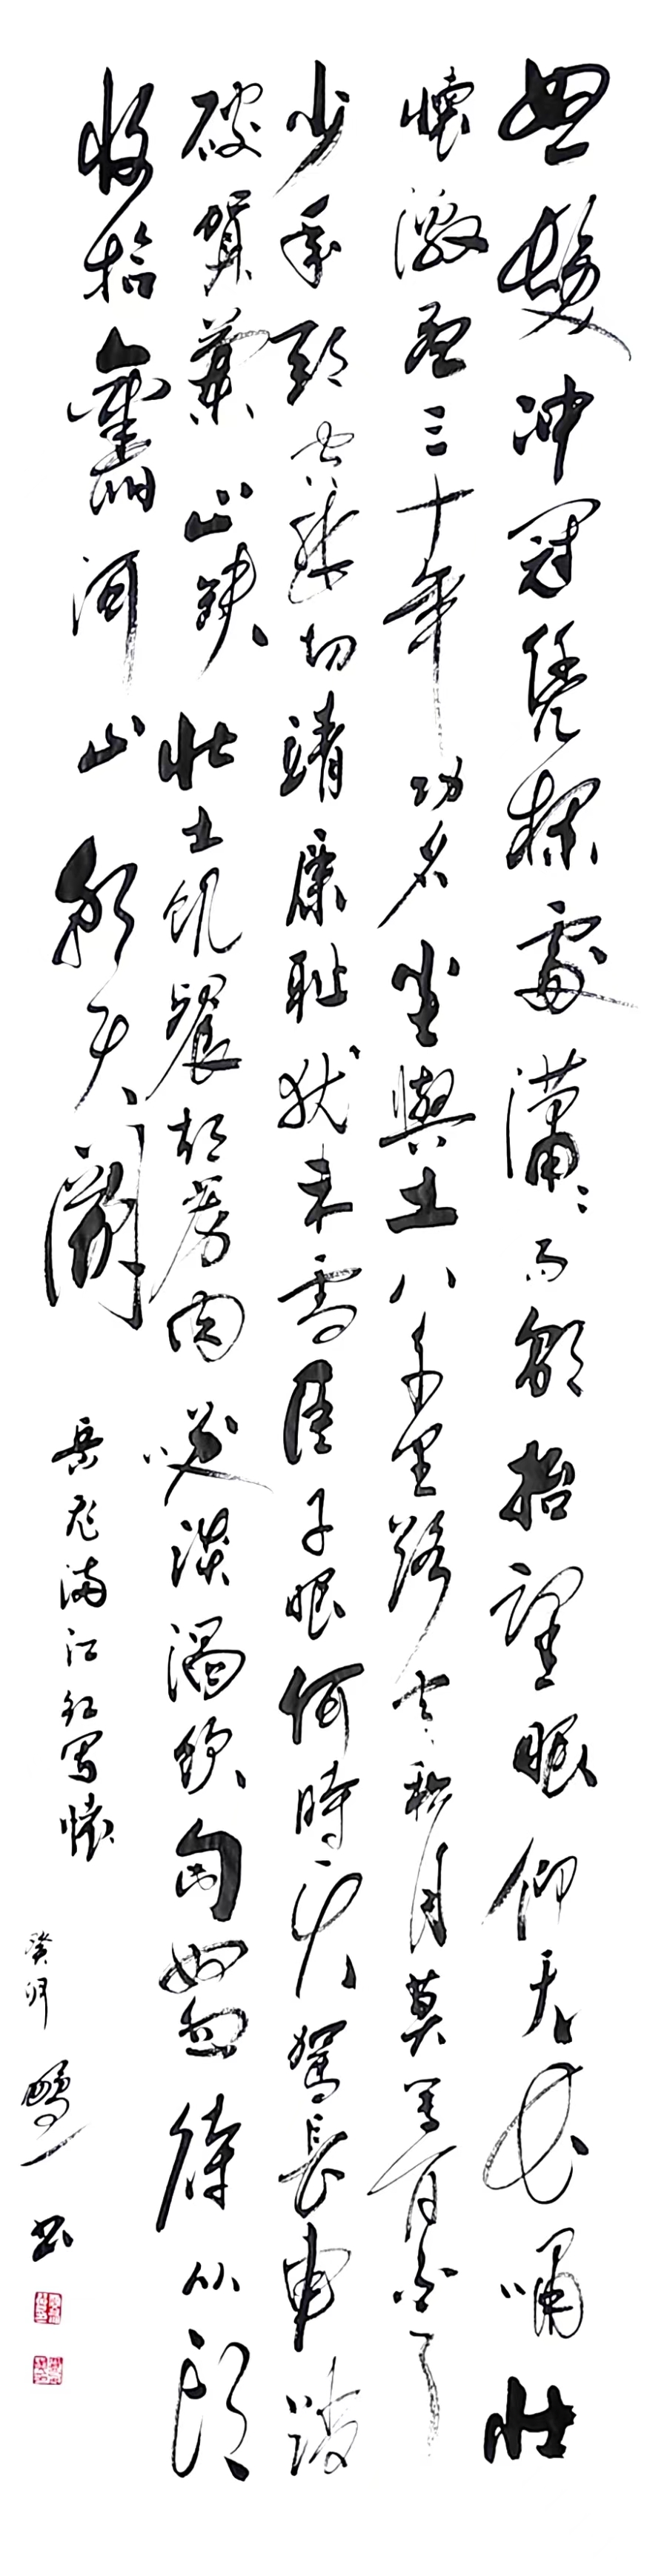 怒髮冲冠凭栏處潇〻雨歇抬望眼仰天长啸壮
懷激烈三十年功名尘與土八千里路云和月莫等闲白了
少年頭空悲切靖康耻犹未雪臣子恨何時灭驾長車踏
破贺兰山缺壮士飢餐胡虏肉笑谈渴饮匈奴血待从头
收拾舊河山朝天阙
岳飞满江红写懷
癸卯 书